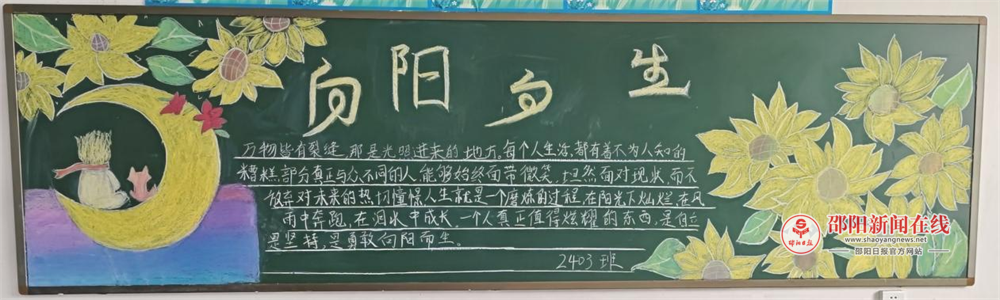 向阳向生
万物皆有裂缝，那是光明进来的地方。每个人生活，都有着不为人知的
糟糕部分真正与众不同的人，能够始终面带微笑，坦然面对现状，而不
放弃对未来的热切憧憬人生就是一个磨炼的过程，在阳光下灿烂，在风
雨中奔跑，在泪水中成长，一个人真正值得炫耀的东西，是自立
是坚持，是勇敢向阳而生。
2403班
邵阳新闻在线
www.shaoyangnews.net
邵阳日报官方网站
邵阳日报